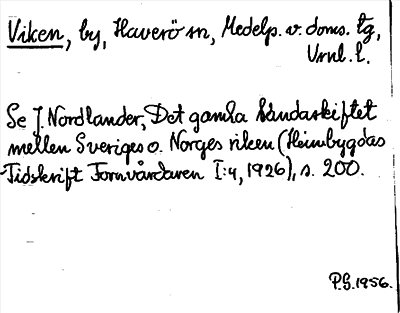 Viken, by, Haverö sn, Medelp. v. doms. tg,
Vrnl. l.
Se J. Nordlander, Det gamla håndaskiftet
mellen Sveriges o. Norges riken (Heimbygdas
Tidskrift Fornvårdaren I:4, 1926), s. 200.
P.G. 1956.